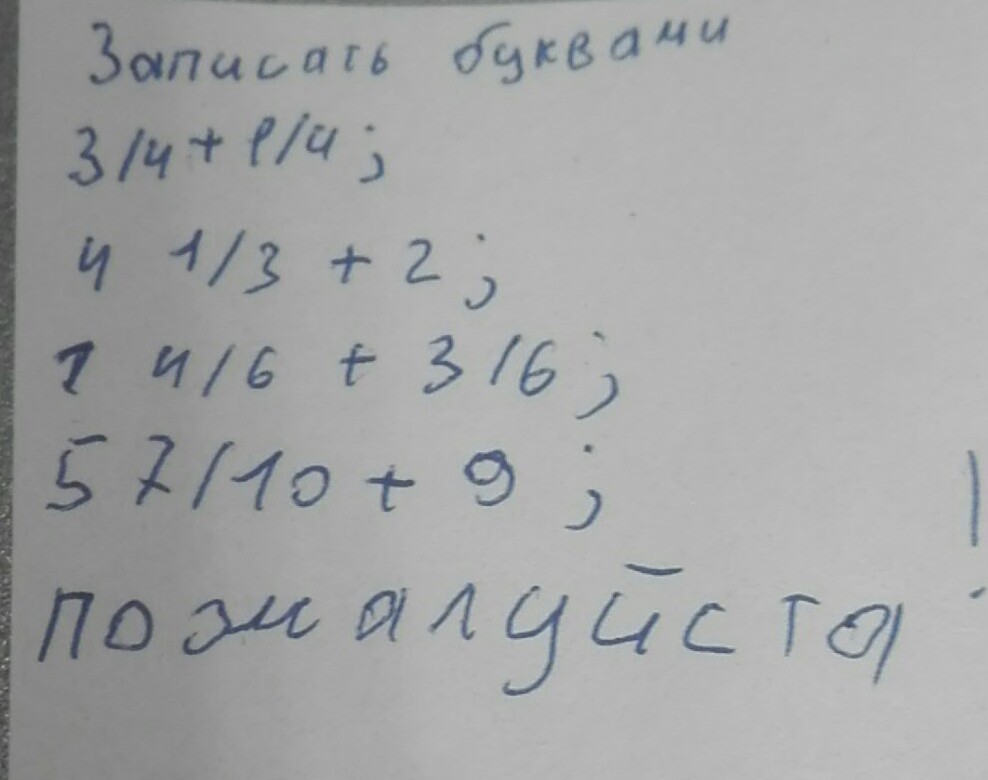 Записать буквами
3/4 + 1/4;
4 1/3 + 2;
1 4/6 + 3/6;
5 7/10 + 9;
пожалуйста!